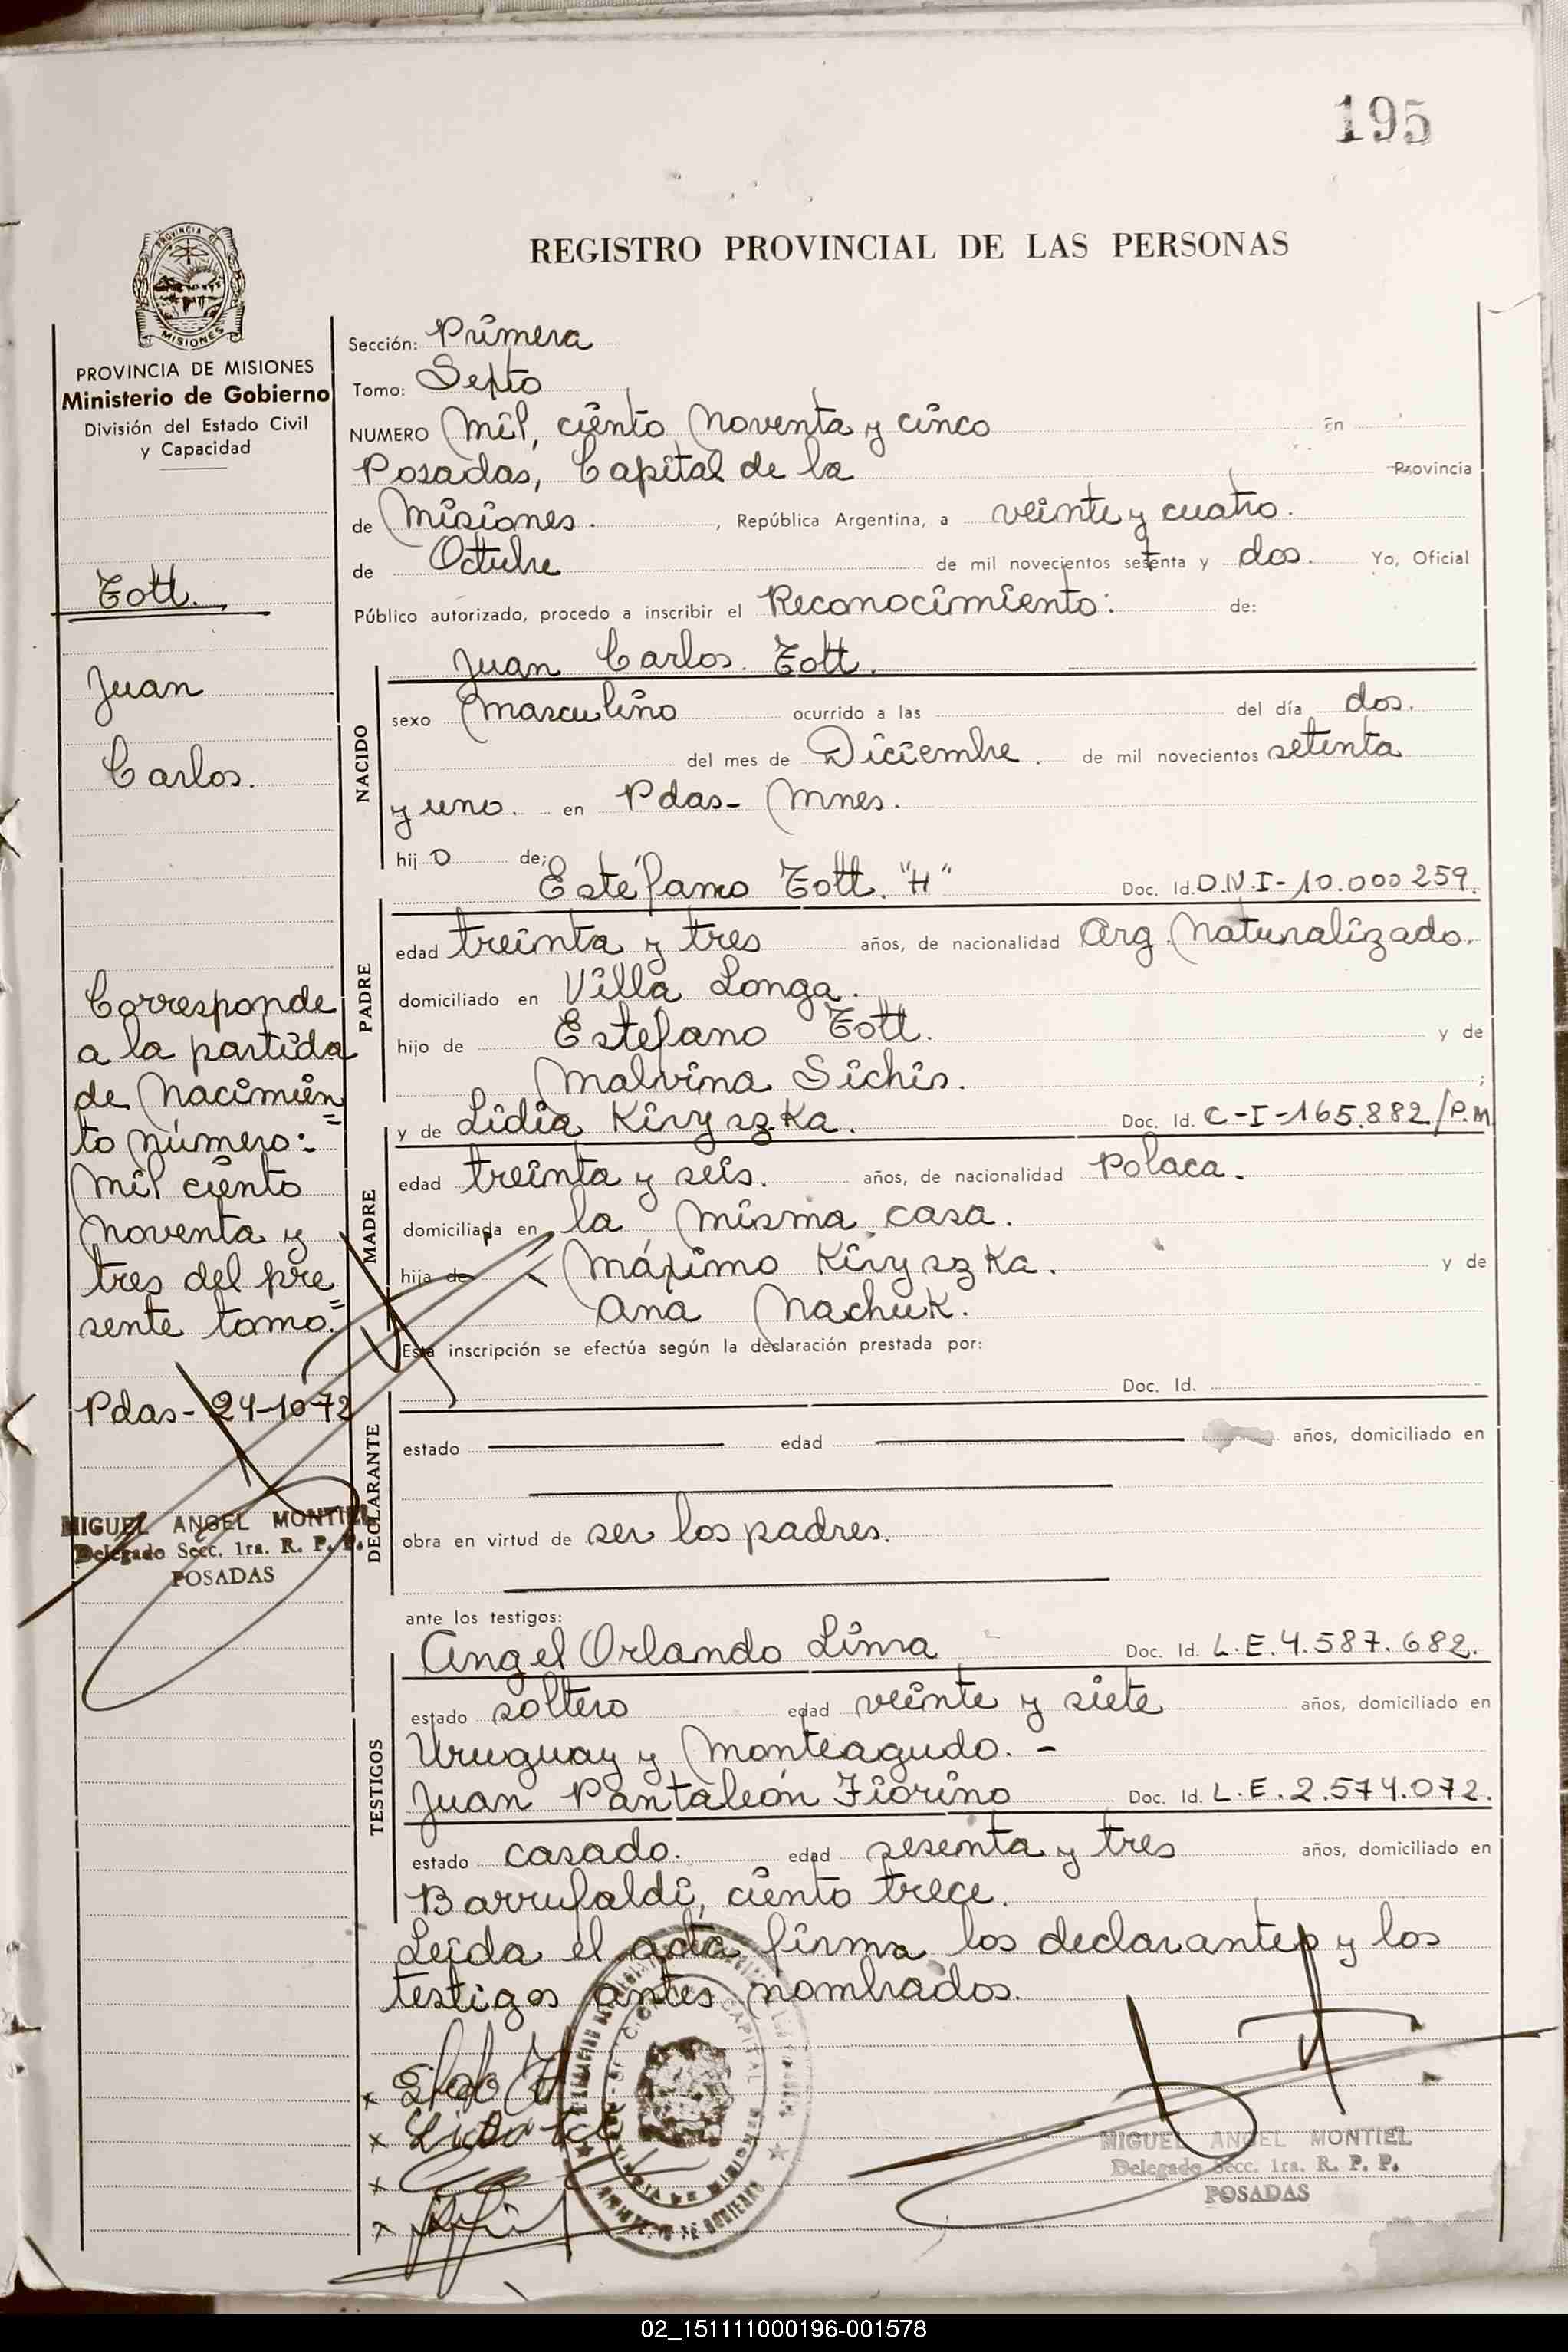 195
REGISTRO PROVINCIAL DE LAS PERSONAS
PROVINCIA DE
MISIONES
PROVINCIA DE MISIONES
Ministerio de Gobierno
División del Estado Civil
y Capacidad
Tott.
Juan
Carlos.
Corresponde
a la partida
de Nacimien=
to número:
mil ciento
noventa y
tres del pre=
sente tomo.
Pdas- 24-10-72
MIGUEL ANGEL MONTIEL
Delegado Secc. 1ra. R. P. P.
POSADAS
Sección: Primera
Tomo: Sexto
NUMERO Mil, ciento noventa y cinco En
Posadas, Capital de la Provincia
de Misiones. , República Argentina, a veinte y cuatro.
de Octubre de mil novecientos setenta y dos. Yo, Oficial
Público autorizado, procedo a inscribir el Reconocimiento: de:
Juan Carlos. Tott.
NACIDO
sexo Masculino ocurrido a las del día dos.
del mes de Diciembre. de mil novecientos setenta
y uno. en Pdas- Mnes.
hijo de;
Estéfano Tott. "H" Doc. Id. D.N.I-10.000259.
PADRE
edad treinta y tres años, de nacionalidad Arg. Naturalizado.
domiciliado en Villa Longa.
hijo de Estefano Tott. y de
Malvina Sichis. ;
MADRE
y de Lidia Kiryszka. Doc. Id. C-I-165.882/P.M
edad treinta y seis. años, de nacionalidad Polaca.
domiciliada en la misma casa.
hija de Máximo Kiryszka. y de
Ana Nachuk.
Esta inscripción se efectúa según la declaración prestada por:
Doc. Id.
DECLARANTE
estado edad años, domiciliado en
obra en virtud de ser los padres.
ante los testigos:
TESTIGOS
Angel Orlando Lima Doc. Id. L.E.4.587.682.
estado soltero edad veinte y siete años, domiciliado en
Uruguay y Monteagudo. -
Juan Pantaleón Fiorino Doc. Id. L.E.2.574.072.
estado casado. edad sesenta y tres años, domiciliado en
Barrufaldi, ciento trece.
Leida el acta firma los declarantes y los
testigos antes nombrados.
MIGUEL ANGEL MONTIEL
Delegado Secc. 1ra. R. P. P.
POSADAS
02_151111000196-001578